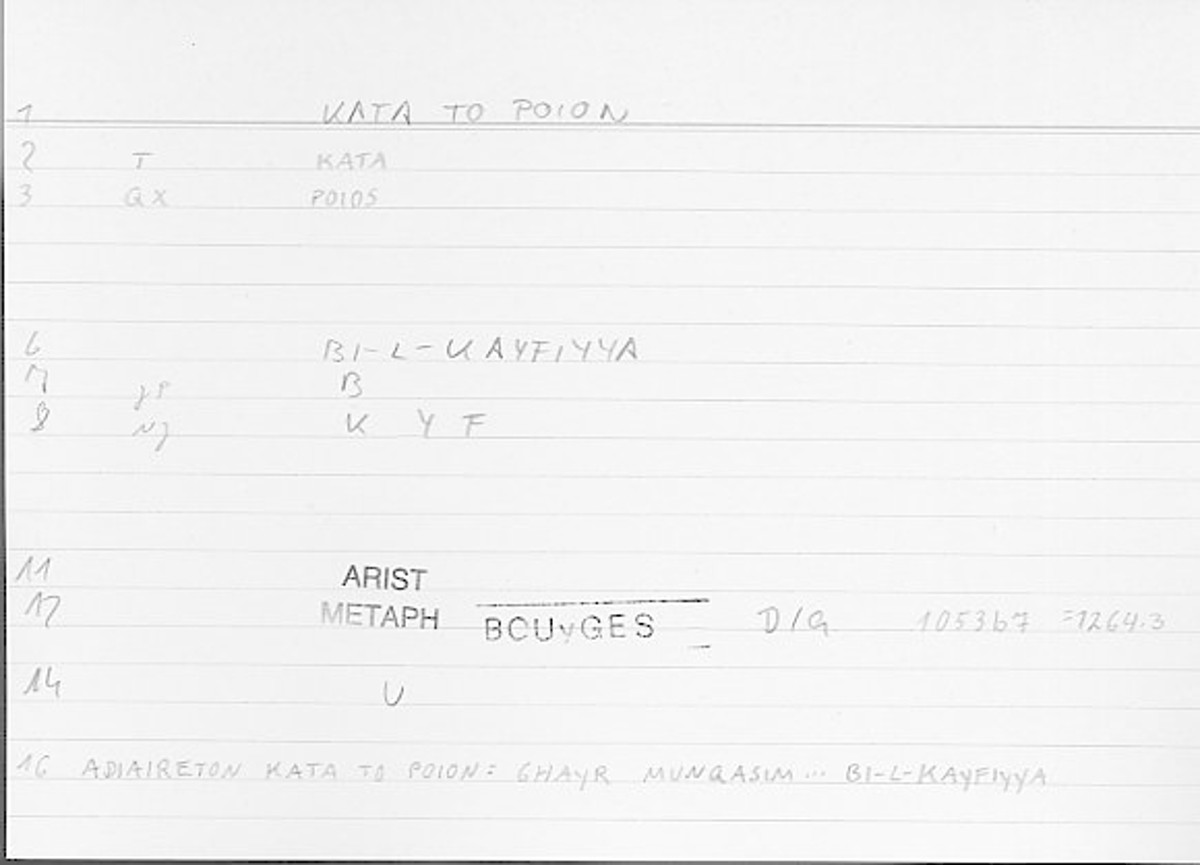 1 KATA TO POION
2 T KATA
3 QX POIOS
6 BI-L-KAYFIYYA
7 JP B
8 NJ K Y F
11 ARIST
12 METAPH BOUYGES D/G 1053b7 =1264.3
14 U
16 ADIAIRETON KATA TO POION: GHAYR MUNQASIM... BI-L-KAYFIYYA